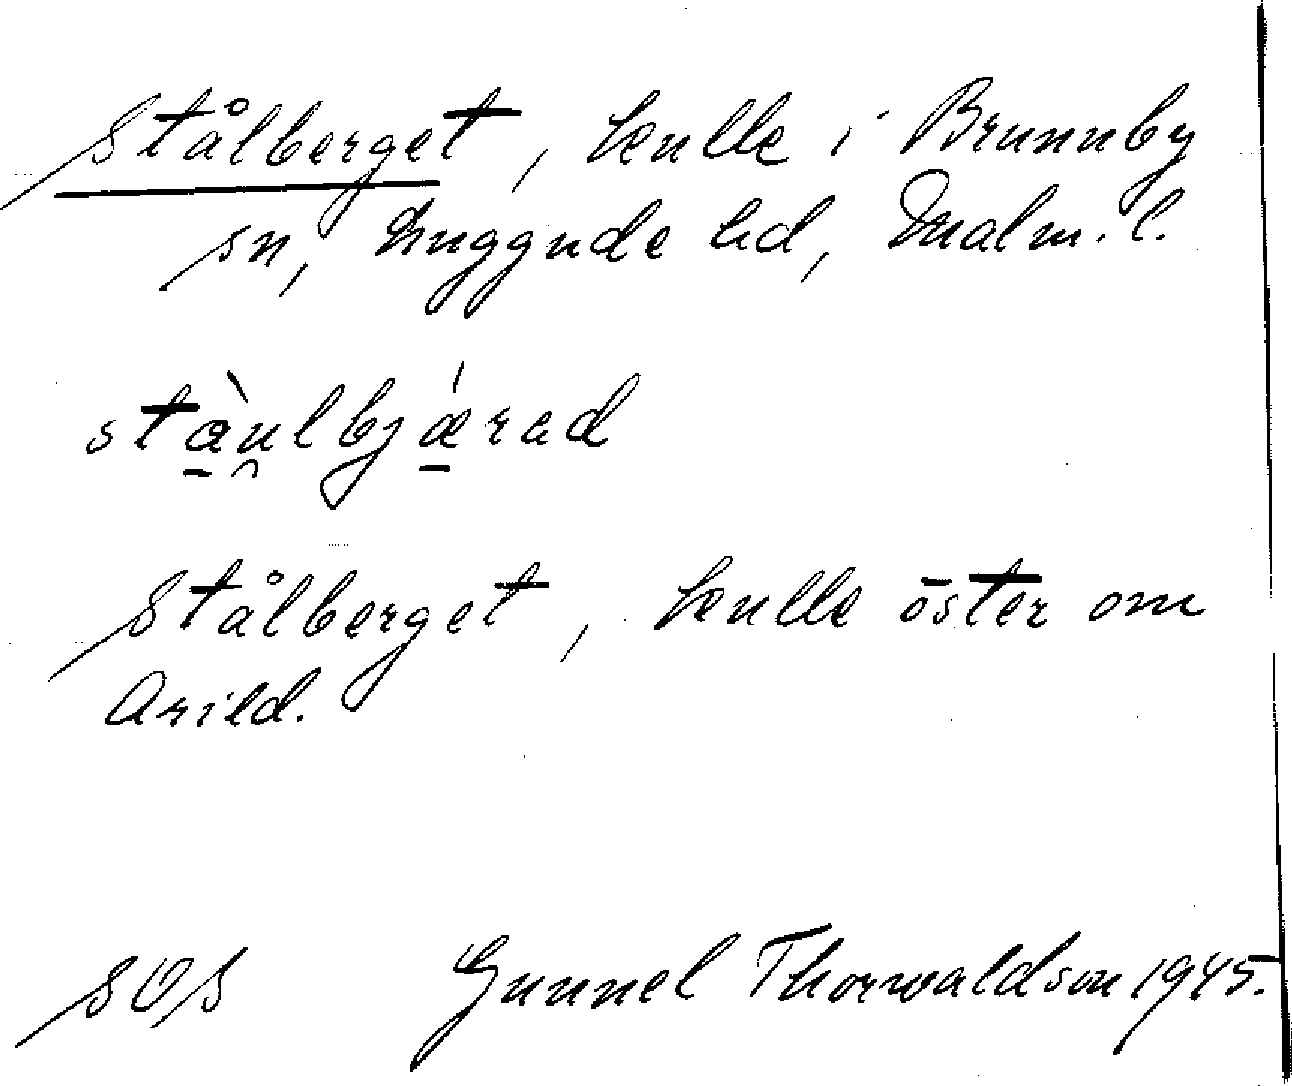 Stålberget, kulle i Brunnby
sn, Luggude hd, Malm. l.
stà̠u̯lbjǽ̠rad
Stålberget, kulle öster om
Arild.
SOS Gunnel Thorwaldson 1945.